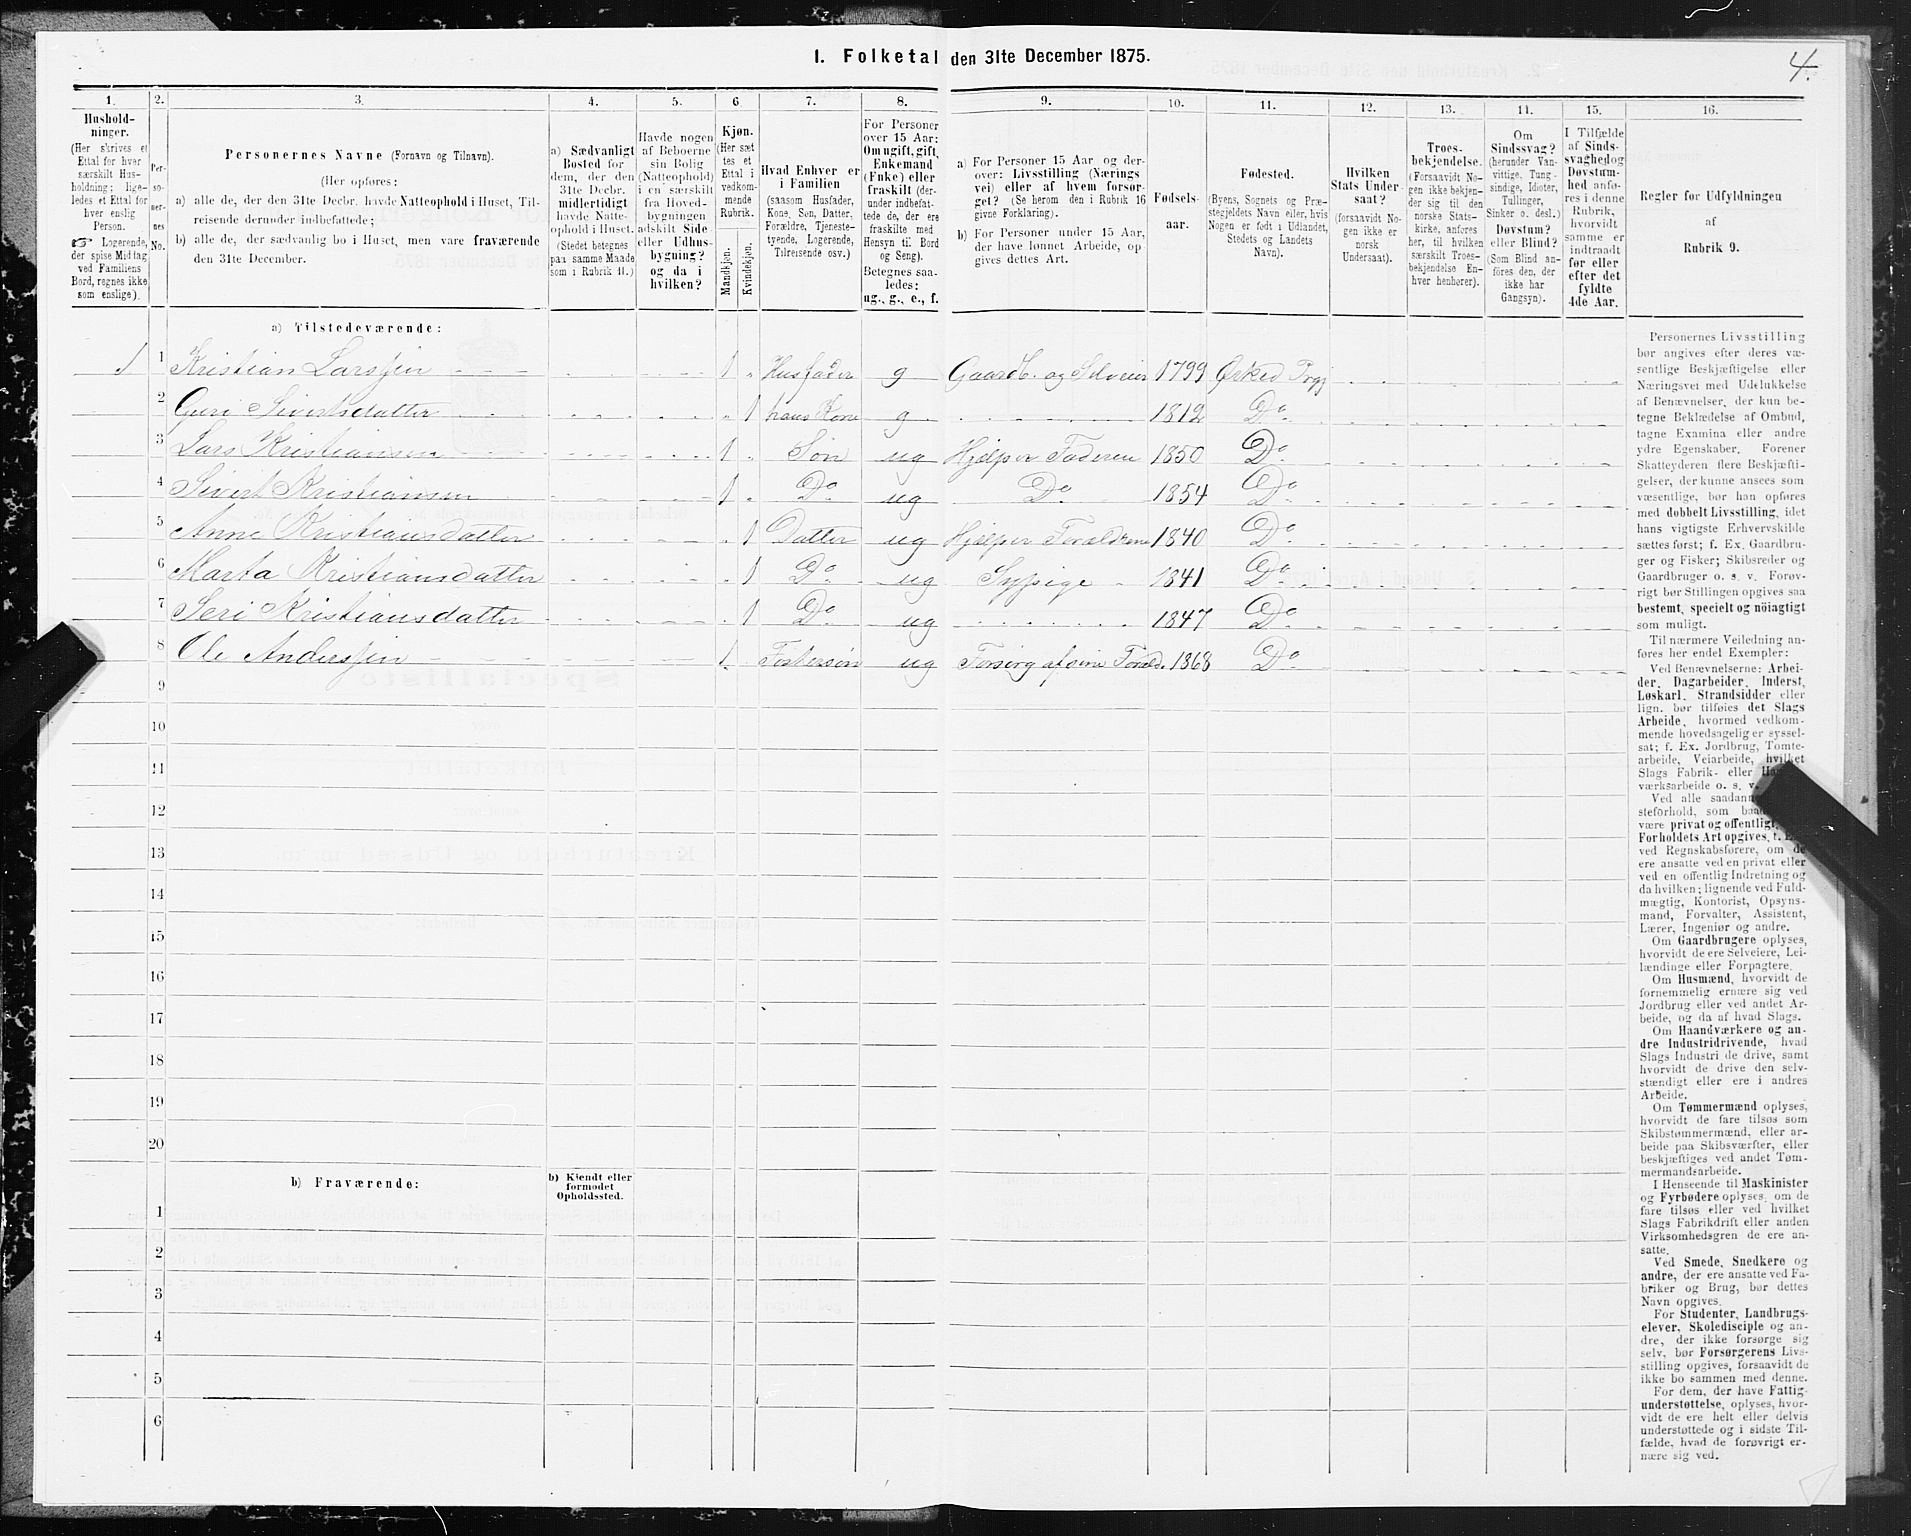 4.
1. Folketal den 31te December 1875.
1. 2. 3. 4. 5. 6 7. 8. 9. 10. 11. 12. 13. 14. 15. 16.
Hushold-
ninger.
(Her skrives et
Ettal for hver
særskilt Hus-
holdning; lige-
ledes et Ettal for
hver enslig
Person.
☞ Logerende,
der spise Middag
ved Familiens
Bord, regnes ikke
som enslige).
Per-
so-
ner-
nes
No.
Personernes Navne (Fornavn og Tilnavn).
(Her opføres:
a) alle de, der den 31te Decbr. havde Natteophold i Huset, Til-
reisende derunder indbefattede;
b) alle de, der sædvanlig bo i Huset, men vare fraværende
den 31te December.
a) Sædvanligt
Bosted for
dem, der den
31te Decbr.
midlertidigt
havde Natte-
ophold i Huset.
(Stedet betegnes
paa samme Maade
som i Rubrik 11.)
Havde nogen
af Beboerne
sin Bolig
(Natteophold)
i en særskilt
fra Hoved-
bygningen
adskilt Side
eller Udhus-
bygning?
og da i
hvilken?
Kjøn.
(Her sæt
tes et
Ettal i
vedkom-
mende
Rubrik.
Mandkjøn.
Kvindekjøn.
Hvad Enhver er
i Familien
(saasom Husfader,
Kone, Søn, Datter,
Forældre, Tjeneste-
tyende, Logerende,
Tilreisende osv.)
For Personer
over 15 Aar:
Om ugift, gift,
Enkemand
(Enke) eller
fraskilt (der-
under indbefat-
tede de, der ere
fraskilte med
Hensyn til Bord
og Seng).
Betegnes saa-
ledes:
ug., g., e., f.
a) For Personer 15 Aar og der-
over: Livsstilling (Nærings
vei) eller af hvem forsør-
get? (Se herom den i Rubrik 16
givne Forklaring).
b) For Personer under 15 Aar,
der have lønnet Arbeide, op-
gives dettes Art.
Fødsels-
aar.
Fødested.
(Byens, Sognets og Præ-
stegjeldets Navn eller, hvis
Nogen er født i Udlandet,
Stedets og Landets
Navn).
Hvilken
Stats Under-
saat?
(forsaavidt No-
gen ikke er
norsk
Undersaat).
Troes-
bekjendelse.
(Forsaavidt No-
gen ikke bekjen-
der sig til den
norske Stats-
kirke, anføres
her, til hvilken
særskilt Troes-
bekjendelse En-
hver henhører).
Om
Sindssvag?
(herunder Van-
vittige, Tung-
sindige, Idioter,
Tullinger,
Sinker o. desl.)
Døvstum?
eller Blind?
(Som Blind an-
føres den, der
ikke har
Gangsyn).
I Tilfælde
af Sinds-
svaghed og
Døvstum-
hed anfø-
res i denne
Rubrik,
hvorvidt
samme er
indtraadt
før eller
efter det
fyldte
4de Aar.
Regler for Udfyldningen
af
Rubrik 9.
a) Tilstedeværende:
1 1 Kristian Larssen 1 Husfader g Gaardb. og Selveier 1799 Ørked Prgj
2 Guri Sivertsdatter 1 hans Kone g 1812 Do
3 Lars Kristiansen 1 Søn ug Hjælper Faderen 1850 Do
4 Sivert Kristiansen 1 Do ug Do 1854 Do
5 Anne Kristiansdatter 1 Datter ug Hjælper Forældrene 1840 Do
6 Marta Kristiansdatter 1 Do ug Sypige 1841 Do
7 Seri Kristiansdatter 1 Do ug 1847 Do
8 Ole Anderssen 1 Fostersøn ug Forsørg af sine Foræld. 1868 Do
9
10
11
12
13
14
15
16
17
18
19
20
b) Fraværende:
b) Kjendt eller
formodet
Opholdssted.
1
2
3
4
5
6
Personernes Livsstilling
bør angives efter deres væ-
sentlige Beskjæftigelse eller
Næringsvei med Udelukkelse
af Benævnelser, der kun be-
tegne Beklædelse af Ombud,
tagne Examina eller andre
ydre Egenskaber. Forener
Skatteyderen flere Beskjæfti-
gelser, der kunne ansees som
væsentlige, bør han opføres
med dobbelt Livsstilling, idet
hans vigtigste Erhvervskilde
sættes først; f. Ex. Gaardbru-
ger og Fisker; Skibsreder og
Gaardbruger o. s. v. Forøv-
rigt bør Stillingen opgives saa
bestemt, specielt og nöiagtigt
som muligt.
Til nærmere Veiledning an-
føres her endel Exempler:
Ved Benævnelserne: Arbei-
der, Dagarbeider, Inderst,
Løskarl, Strandsidder eller
lign. bør tilføies det Slags
Arbeide, hvormed vedkom-
mende hovedsagelig er syssel-
sat; f. Ex. Jordbrug, Tomte-
arbeide, Veiarbeide, hvilket
Slags Fabrik- eller
værksarbeide o. s. v.
Ved alle
steforhold, som
være privat og offentligt,
Forholdets Art opgives,
ved Regnskabsførere, om de
ere ansatte ved en privat eller
ved en offentlig Indretning og
da hvilken; lignende ved Fuld-
mægtig, Kontorist, Opsyns-
mand, Forvalter, Assistent,
Lærer, Ingeniør og andre.
Om Gaardbrugere oplyses,
hvorvidt de ere Selveiere, Lei-
lændinge eller Forpagtere.
Om Husmænd, hvorvidt de
fornemmelig ernære sig ved
Jordbrug eller ved andet Ar-
beide, og da af hvad Slags.
Om Haandværkere og an-
dre Industridrivende, hvad
Slags Industri de drive, samt
hvorvidt de drive den selv-
stændigt eller ere i andres
Arbeide.
Om Tømmermænd oplyses,
hvorvidt de fare tilsøs som
Skibstømmermænd, eller ar-
beide paa Skibsværfter, eller
beskjæftiges ved andet Tøm-
mermandsarbeide.
I Henseende til Maskinister
og Fyrbødere oplyses, om de
fare tilsøs eller ved hvilket
Slags Fabrikdrift eller anden
Virksomhedsgren de ere an-
satte.
Ved Smede, Snedkere og
andre, der ere ansatte ved Fa-
briker og Brug, bør dettes
Navn opgives.
For Studenter, Landbrugs-
elever, Skoledisciple og an-
dre, der ikke forsørge sig
selv, bør Forsørgerens Livs-
stilling opgives, forsaavidt de
ikke bo sammen med denne.
For dem, der have Fattig-
understøttelse, oplyses, hvor-
vidt de ere helt eller delvis
understøttede og i sidste Til-
fælde, hvad de forøvrigt er-
nære sig ved.